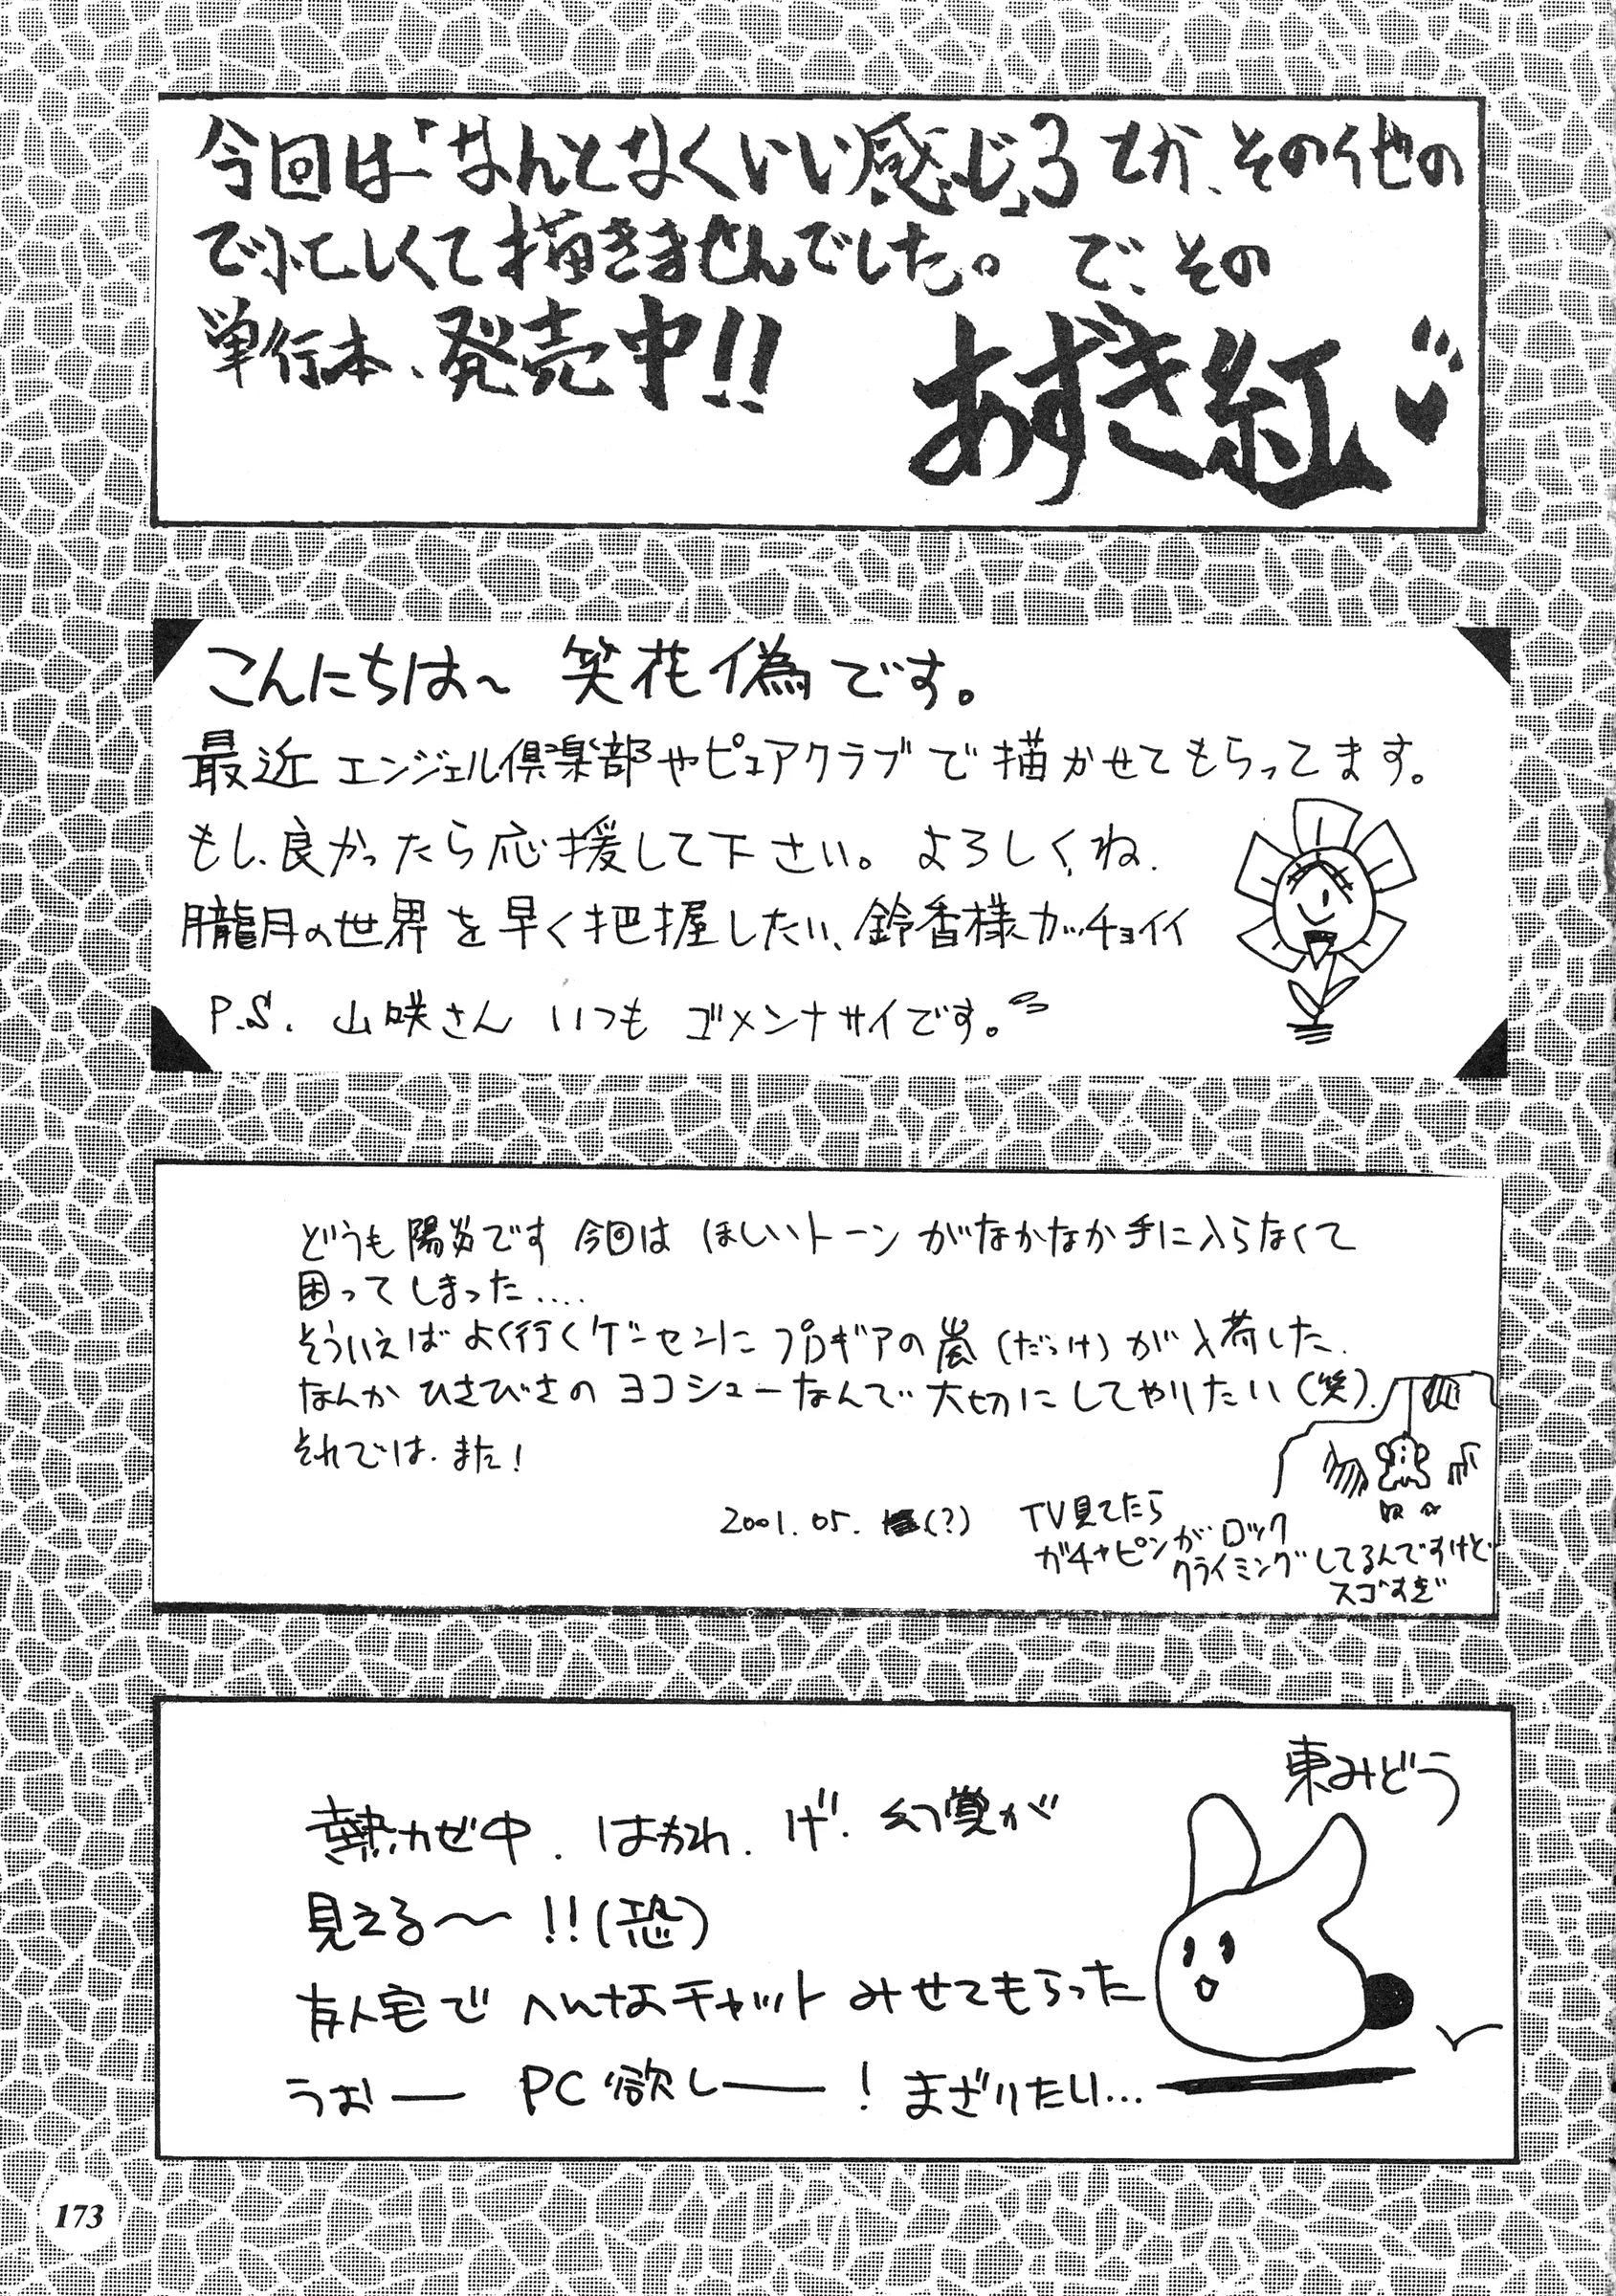 今回は「なんとなくいい感じ」3とか、その他の
で忙しくて描きませんでした。で、その
単行本、発売中!!
あずき紅
こんにちは～ 笑花偽です。
最近エンジェル倶楽部やピュアクラブで描かせてもらってます。
もし、良かったら応援して下さい。よろしくね.
朧月の世界を早く把握したい、鈴香様カッチョイイ
P.S. 山咲さん いつも ゴメンナサイです。
どうも陽炎です 今回は ほしいトーン がなかなか手に入らなくて
困ってしまった....
そういえばよく行くゲーセンに プロギアの嵐 (だっけ) が入荷した.
なんか ひさびさの ヨコシューなんで 大切にしてやりたい (笑).
それでは.また!
2001.05. (?)
TV見てたら
ガチャピンがロック
クライミングしてるんですけど
スゴすぎ
東みどう
熱カゼ中. はわわ. げ! 幻覚が
見える～～!!(恐)
友人宅で へんなチャット みせてもらった
うおー PC欲しー! まざりたい...
173